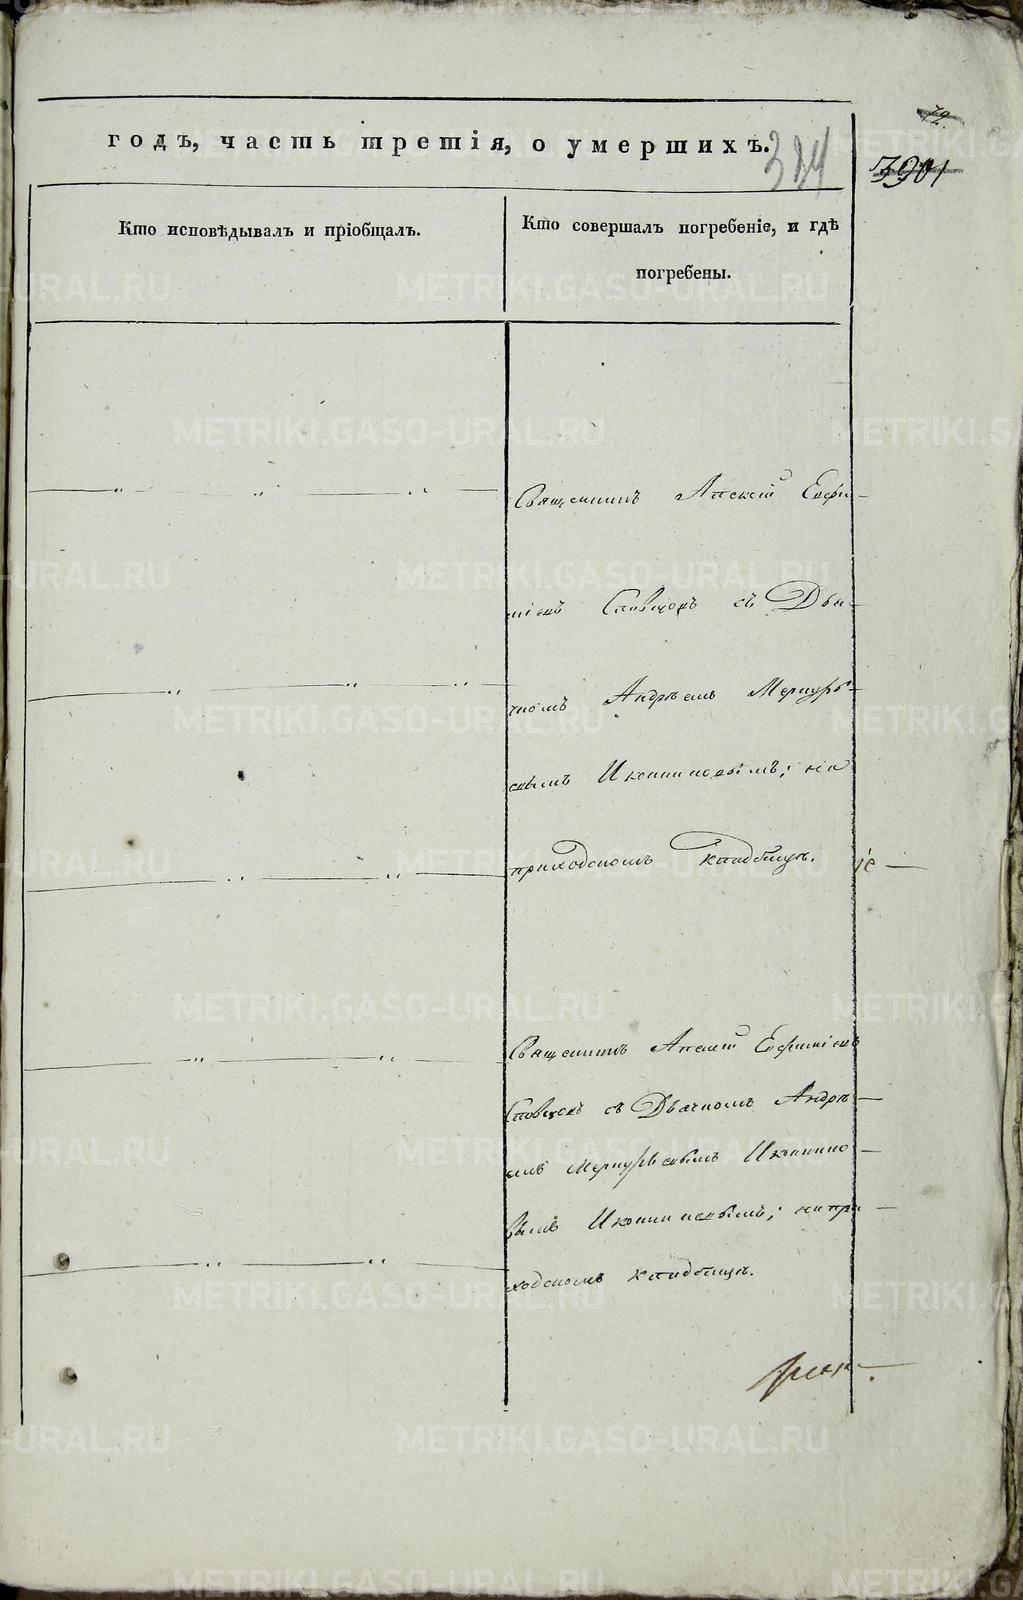 годъ, часть третія, о умершихъ.
384
Кто исповѣдывалъ и пріобщалъ.
Кто совершалъ погребеніе, и гдѣ
погребены.
Священникъ Алексій Евфи-
міевъ Словцовъ съ Дья-
чкомъ Андреемъ Меркурь-
евымъ Иконниковымъ; на
приходскомъ кладбищѣ.
Священникъ Алексій Евфиміевъ
Словцовъ съ Дьячкомъ Андре-
емъ Меркурьевымъ Иконнико-
вымъ Иконниковымъ; на при-
ходскомъ кладбищѣ.
METRIKI.GASO-URAL.RU